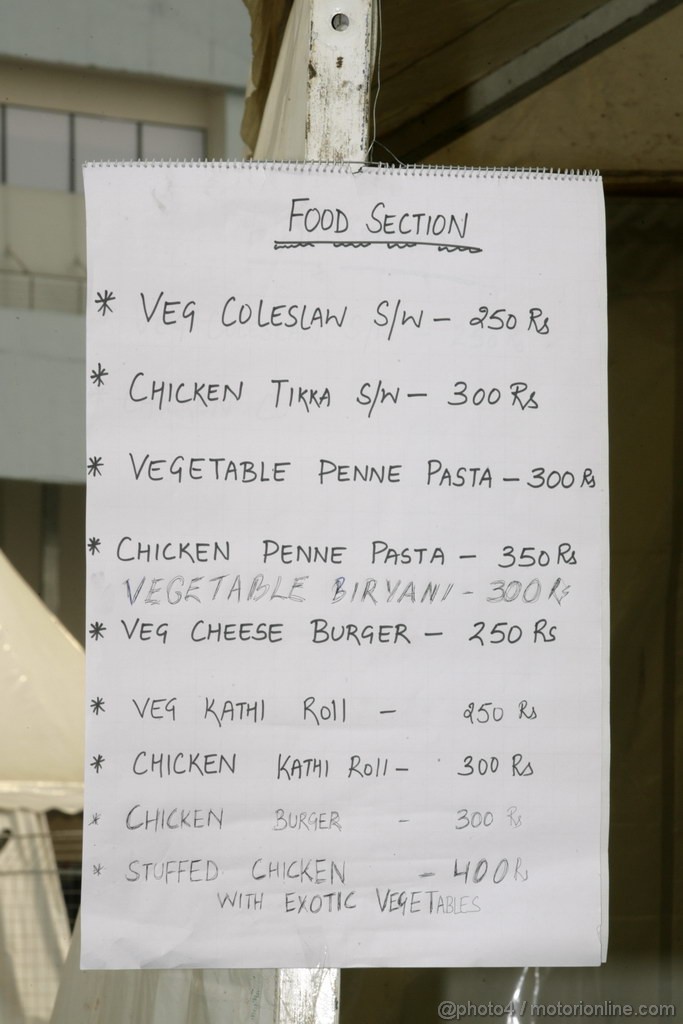 FOOD SECTION
* VEG COLESLAW S/W - 250 Rs
* CHICKEN TIKKA S/W - 300 Rs
* VEGETABLE PENNE PASTA - 300 Rs
* CHICKEN PENNE PASTA - 350 Rs
VEGETABLE BIRYANI - 300 Rs
* VEG CHEESE BURGER - 250 Rs
* VEG KATHI ROll - 250 Rs
* CHICKEN KATHI ROll - 300 Rs
* CHICKEN BURGER - 300 Rs
* STUFFED CHICKEN - 400 Rs
WITH EXOTIC VEGETABLES
@photo4 / motorionline.com